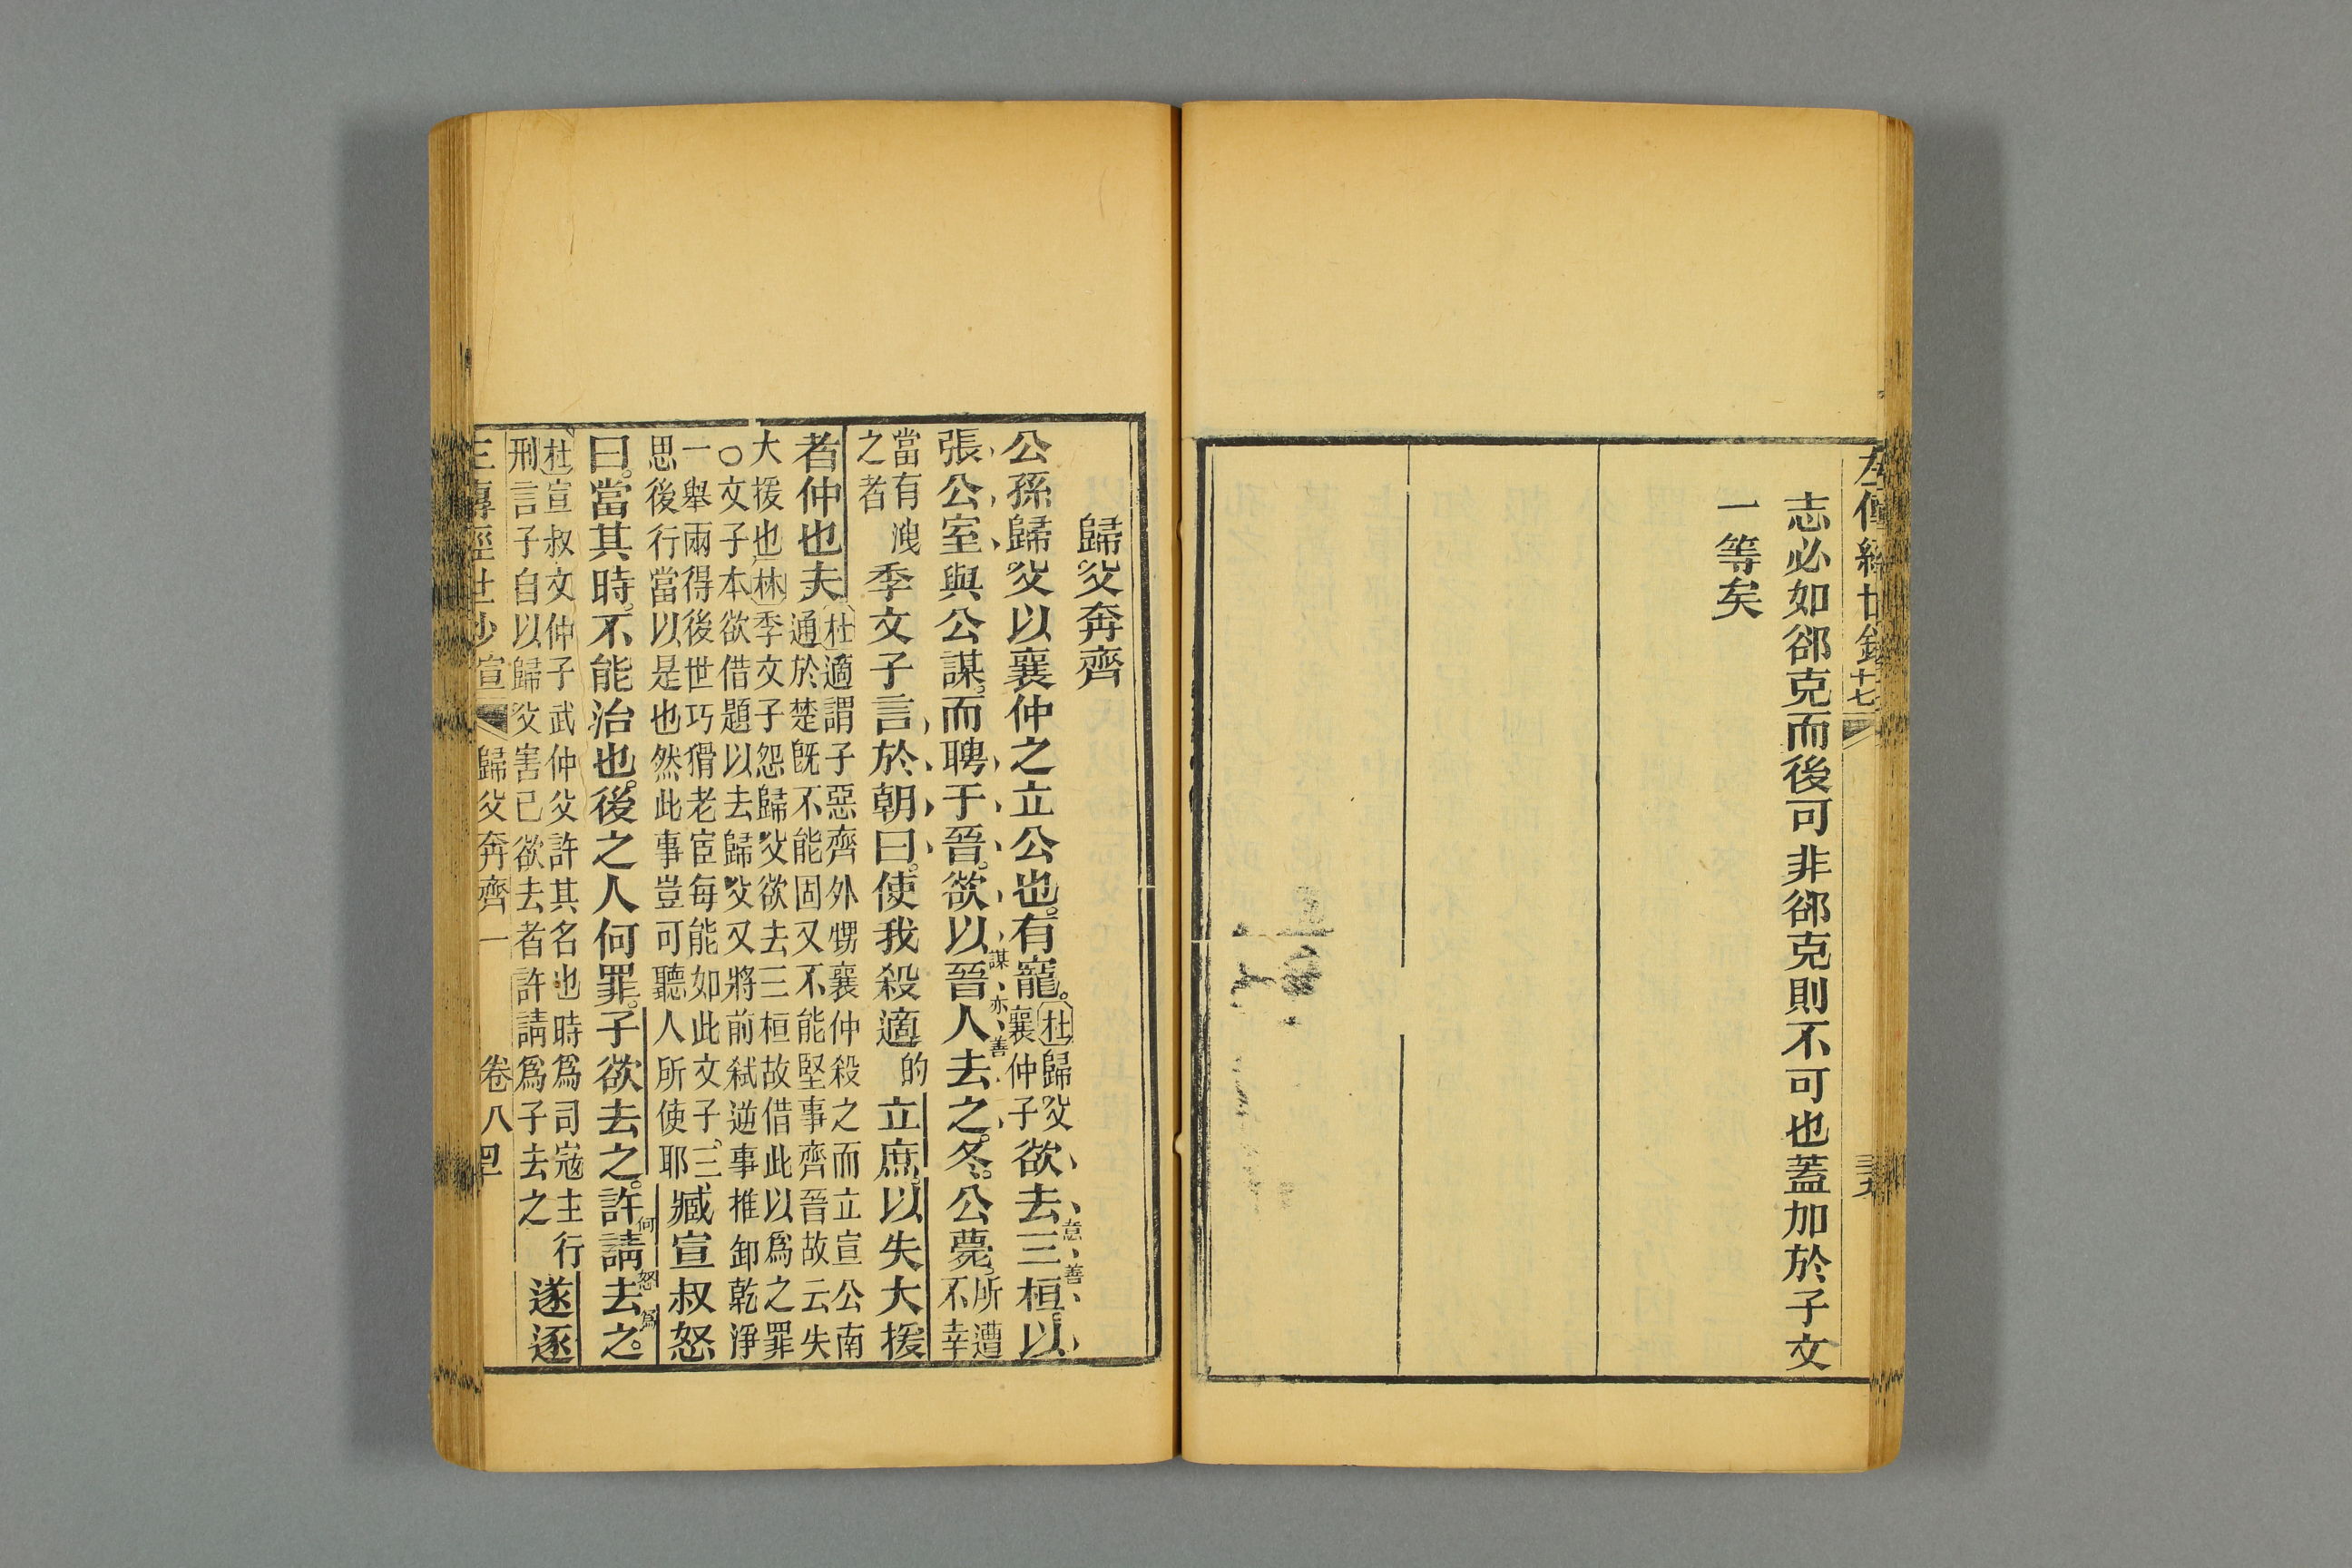 左傳經世鈔十七
三九
志必如郤克而後可非郤克則不可也蓋加於子文
一等矣
歸父奔齊
公孫歸父以襄仲之立公也。有寵。杜歸父襄仲子欲去三桓以
意善
張公室與公謀。而聘于晉。欲以晉人去之。冬。公薨。所遭不幸
謀亦善
當有洩之者季文子言於朝曰。使我殺適的立庶。以失大援
者仲也夫杜適謂子惡齊外甥襄仲殺之而立宣公南通於楚既不能固又不能堅事齊晉故云失
大援也林季文子怨歸父欲去三桓故借此以爲之罪
○文子本欲借題以去歸父又將前弒逆事推卸乾淨
一舉兩得後世巧猾老宦每能如此文子。三
思後行當以是也然此事豈可聽人所使耶臧宣叔怒
曰。當其時。不能治也。後之人何罪。子欲去之。許請去之。
何怒爲
杜宣叔文仲子武仲父許其名也時爲司寇主行
刑言子自以歸父害己欲去者許請爲子去之遂逐
三傳經世鈔宣 歸父奔齊一 卷八